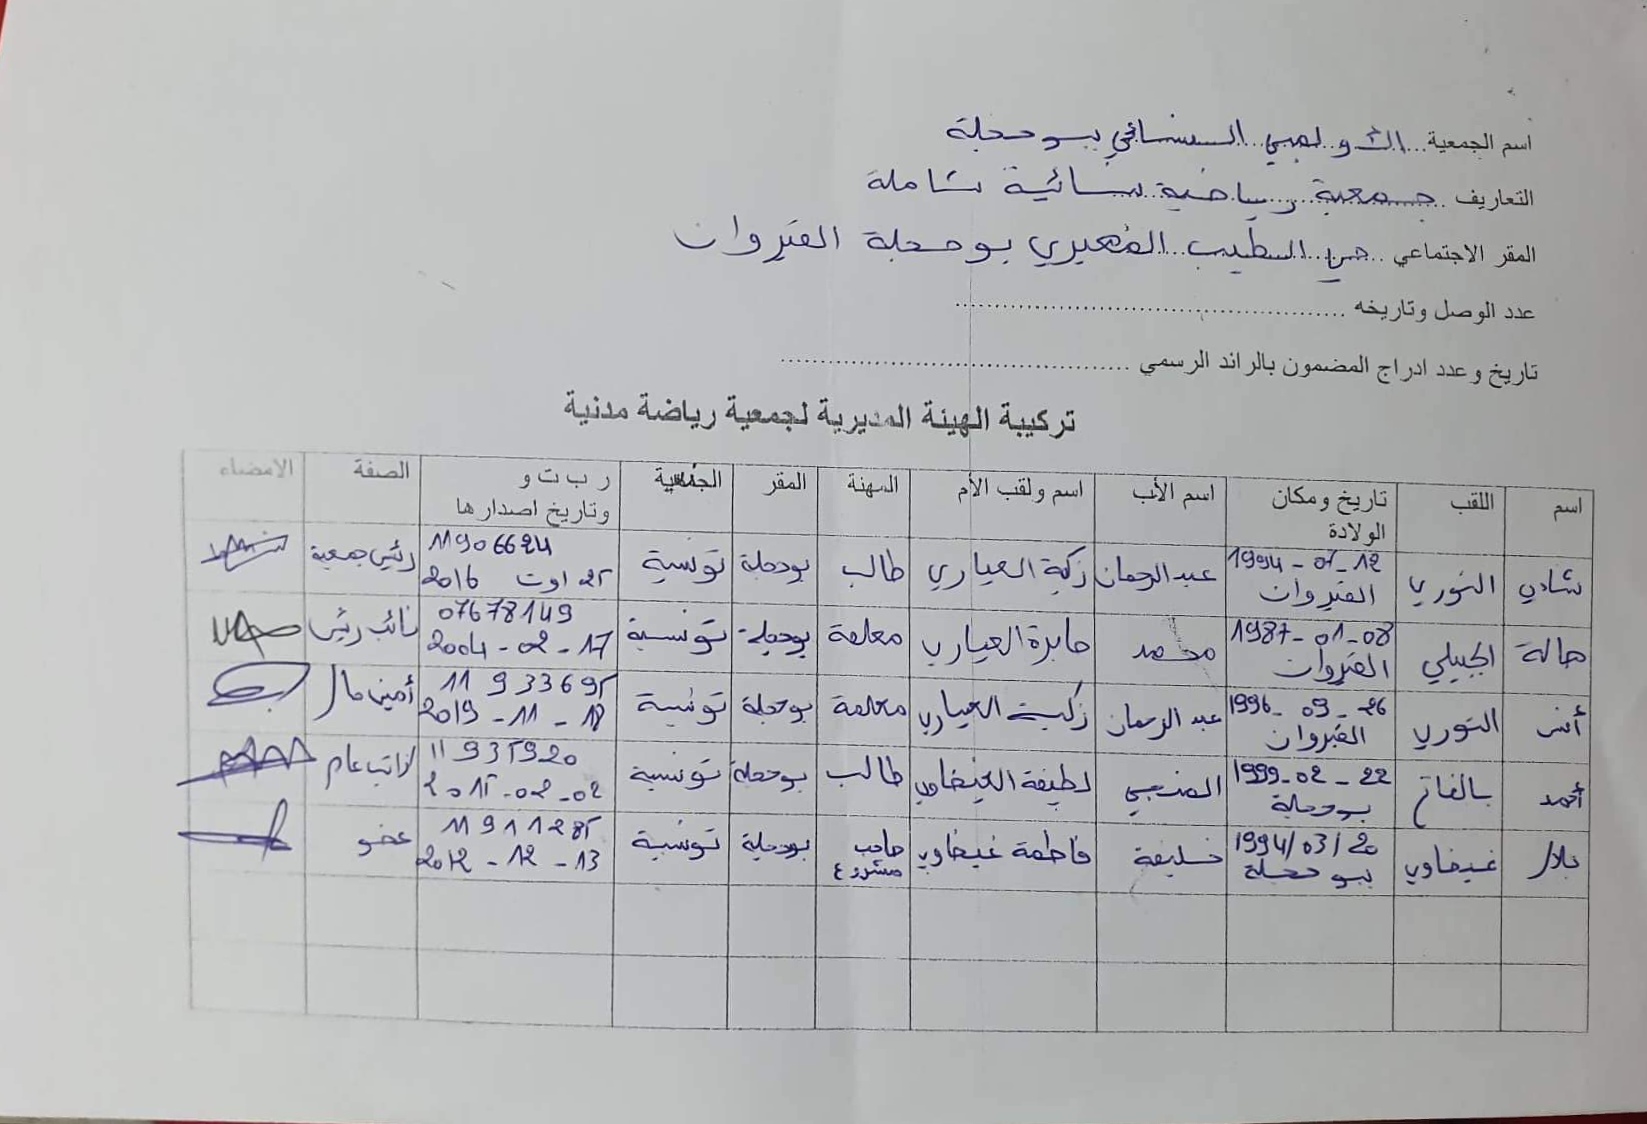 اسم الجمعية ... الاولمبي النسائي ببوحجلة
التعاريف ... جمعية رياضية نسائية شاملة
المقر الاجتماعي ... حي الطيب المهيري بوحجلة القيروان
عدد الوصل وتاريخه ...
تاريخ وعدد ادراج المضمون بالرائد الرسمي ...
تركيبة الهيئة المديرية لجمعية رياضة مدنية
اسم اللقب تاريخ ومكان الولادة اسم الأب اسم ولقب الأم المهنة المقر الجنسية ر ب ت و وتاريخ اصدارها الصفة الامضاء
شادي النوري 12-01-1994 القيروان عبد الرحمان زكية العياري طالب بوحجلة تونسية 11906624 25 اوت 2016 رئيس جمعية
هالة الجبيلي 08-01-1987 القيروان محمد صابرة العياري معلمة بوحجلة تونسية 07678149 17-02-2004 نائب رئيس
أنس النوري 26-09-1996 القيروان عبد الرحمان زكية العياري معلمة بوحجلة تونسية 11933695 18-11-2019 أمين مال
أحمد بالفالح 22-02-1999 بوحجلة المنجي لطيفة الغيضاوي طالب بوحجلة تونسية 11935920 02-02-2015 كاتب عام
بلال غيضاوي 20/03/1994 ببوحجلة خليفة فاطمة غيضاوي صاحب مشروع بوحجلة تونسية 11911285 13-12-2012 عضو